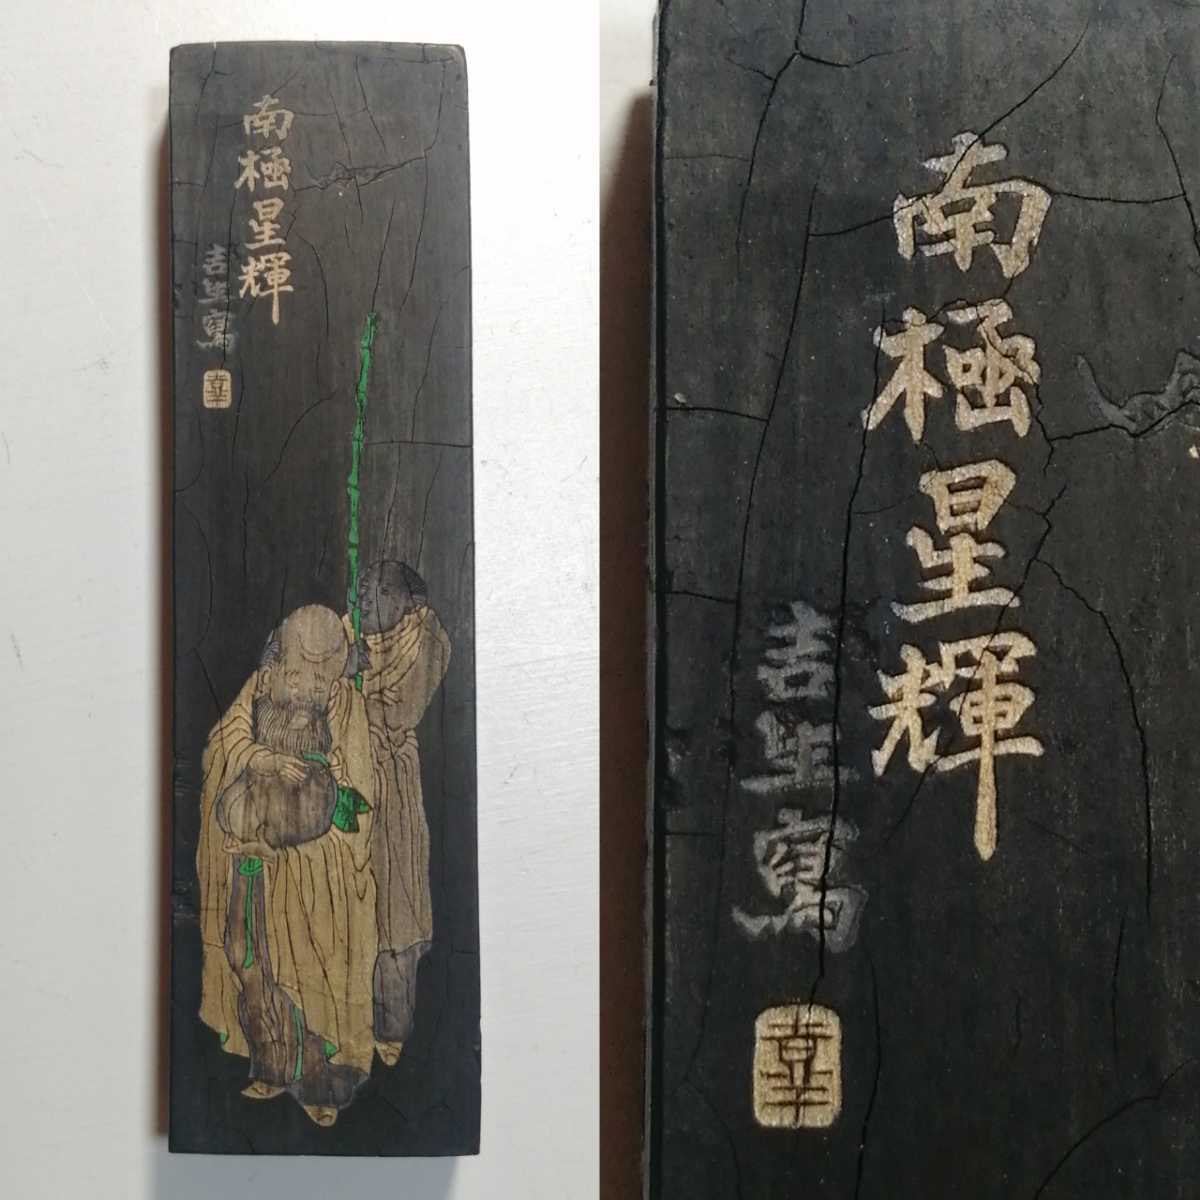 南極星輝
吉生寫
南極星輝
吉生寫